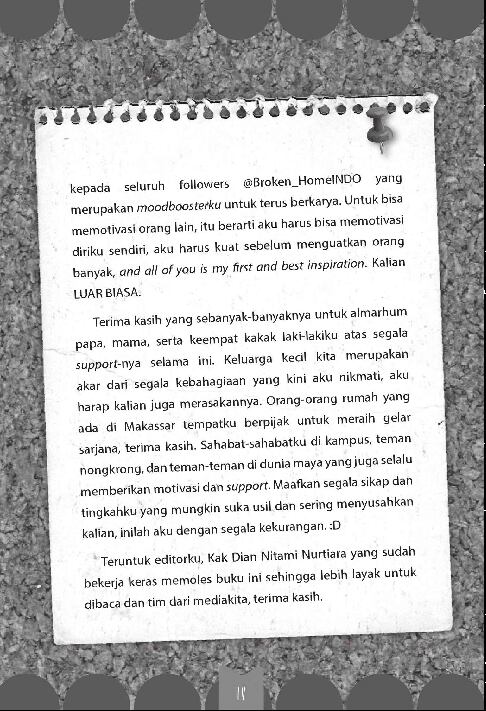 kepada seluruh followers @Broken_HomeINDO yang
merupakan moodboosterku untuk terus berkarya. Untuk bisa
memotivasi orang lain, itu berarti aku harus bisa memotivasi
diriku sendiri, aku harus kuat sebelum menguatkan orang
banyak, and all of you is my first and best inspiration. Kalian
LUAR BIASA.
Terima kasih yang sebanyak-banyaknya untuk almarhum
papa, mama, serta keempat kakak laki-lakiku atas segala
support-nya selama ini. Keluarga kecil kita merupakan
akar dari segala kebahagiaan yang kini aku nikmati, aku
harap kalian juga merasakannya. Orang-orang rumah yang
ada di Makassar tempatku berpijak untuk meraih gelar
sarjana, terima kasih. Sahabat-sahabatku di kampus, teman
nongkrong, dan teman-teman di dunia maya yang juga selalu
memberikan motivasi dan support. Maafkan segala sikap dan
tingkahku yang mungkin suka usil dan sering menyusahkan
kalian, inilah aku dengan segala kekurangan. :D
Teruntuk editorku, Kak Dian Nitami Nurtiara yang sudah
bekerja keras memoles buku ini sehingga lebih layak untuk
dibaca dan tim dari mediakita, terima kasih.